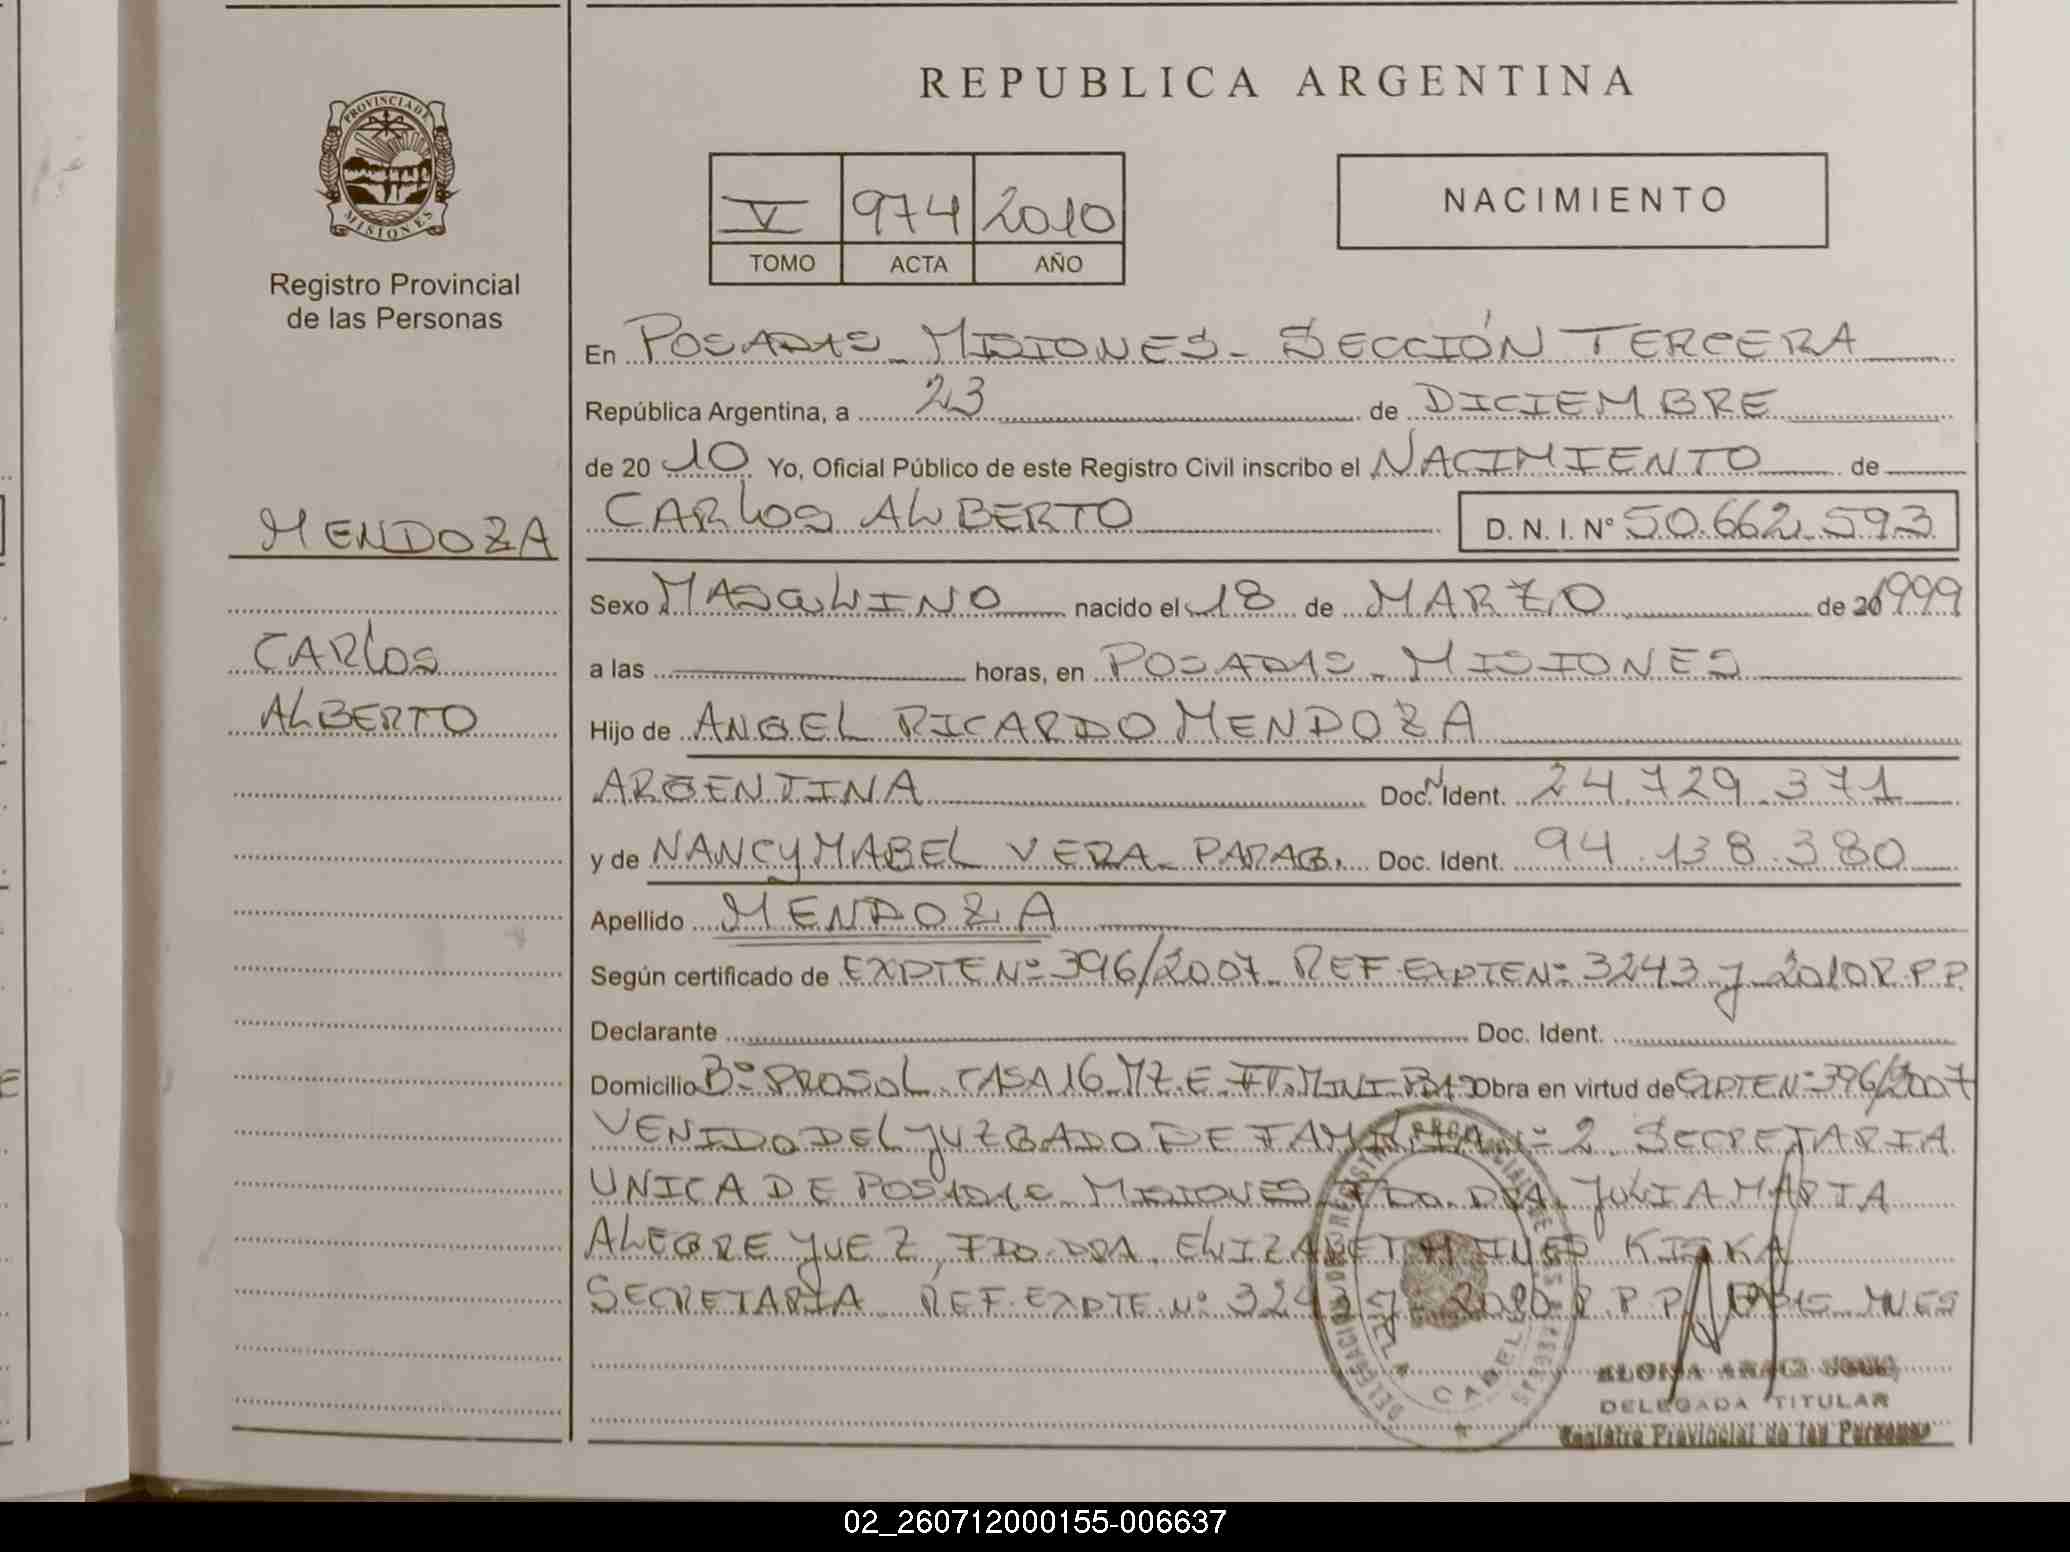 REPUBLICA ARGENTINA
PROVINCIA DE
MISIONES
Registro Provincial
de las Personas
V 974 2010
TOMO ACTA AÑO
NACIMIENTO
En POSADAS - MISIONES - SECCIÓN TERCERA
República Argentina, a 23 de DICIEMBRE
de 20 10 Yo, Oficial Público de este Registro Civil inscribo el NACIMIENTO de
CARLOS ALBERTO D. N. I. Nº 50.662.593
MENDOZA
Sexo MASCULINO nacido el 18 de MARZO de 20 1999
CARLOS
a las horas, en POSADAS - MISIONES
ALBERTO
Hijo de ANGEL RICARDO MENDOZA
ARGENTINA Doc. Ident. 24.729.371
y de NANCY MABEL VERA - PARAG. Doc. Ident. 94.138.380
Apellido MENDOZA
Según certificado de EXPTE Nº 396/2007 - REF. EXPTE Nº 3243 y 2010 R.P.P.
Declarante Doc. Ident.
Domicilio Bº PROSOL CASA 16 MZ. E Obra en virtud de EXPTE Nº 396/2007
VENIDO DEL JUZGADO DE FAMILIA Nº 2 SECRETARIA
UNICA DE POSADAS MISIONES FDO. DRA. JULIA MARIA
ALEGRE JUEZ, FDO. DRA. ELIZABETH INES KISKA
SECRETARIA REF. EXPTE Nº 3243 y 2010 R.P.P. PDAS. MNES
DELEGADA TITULAR
Registro Provincial de las Personas
02_260712000155-006637